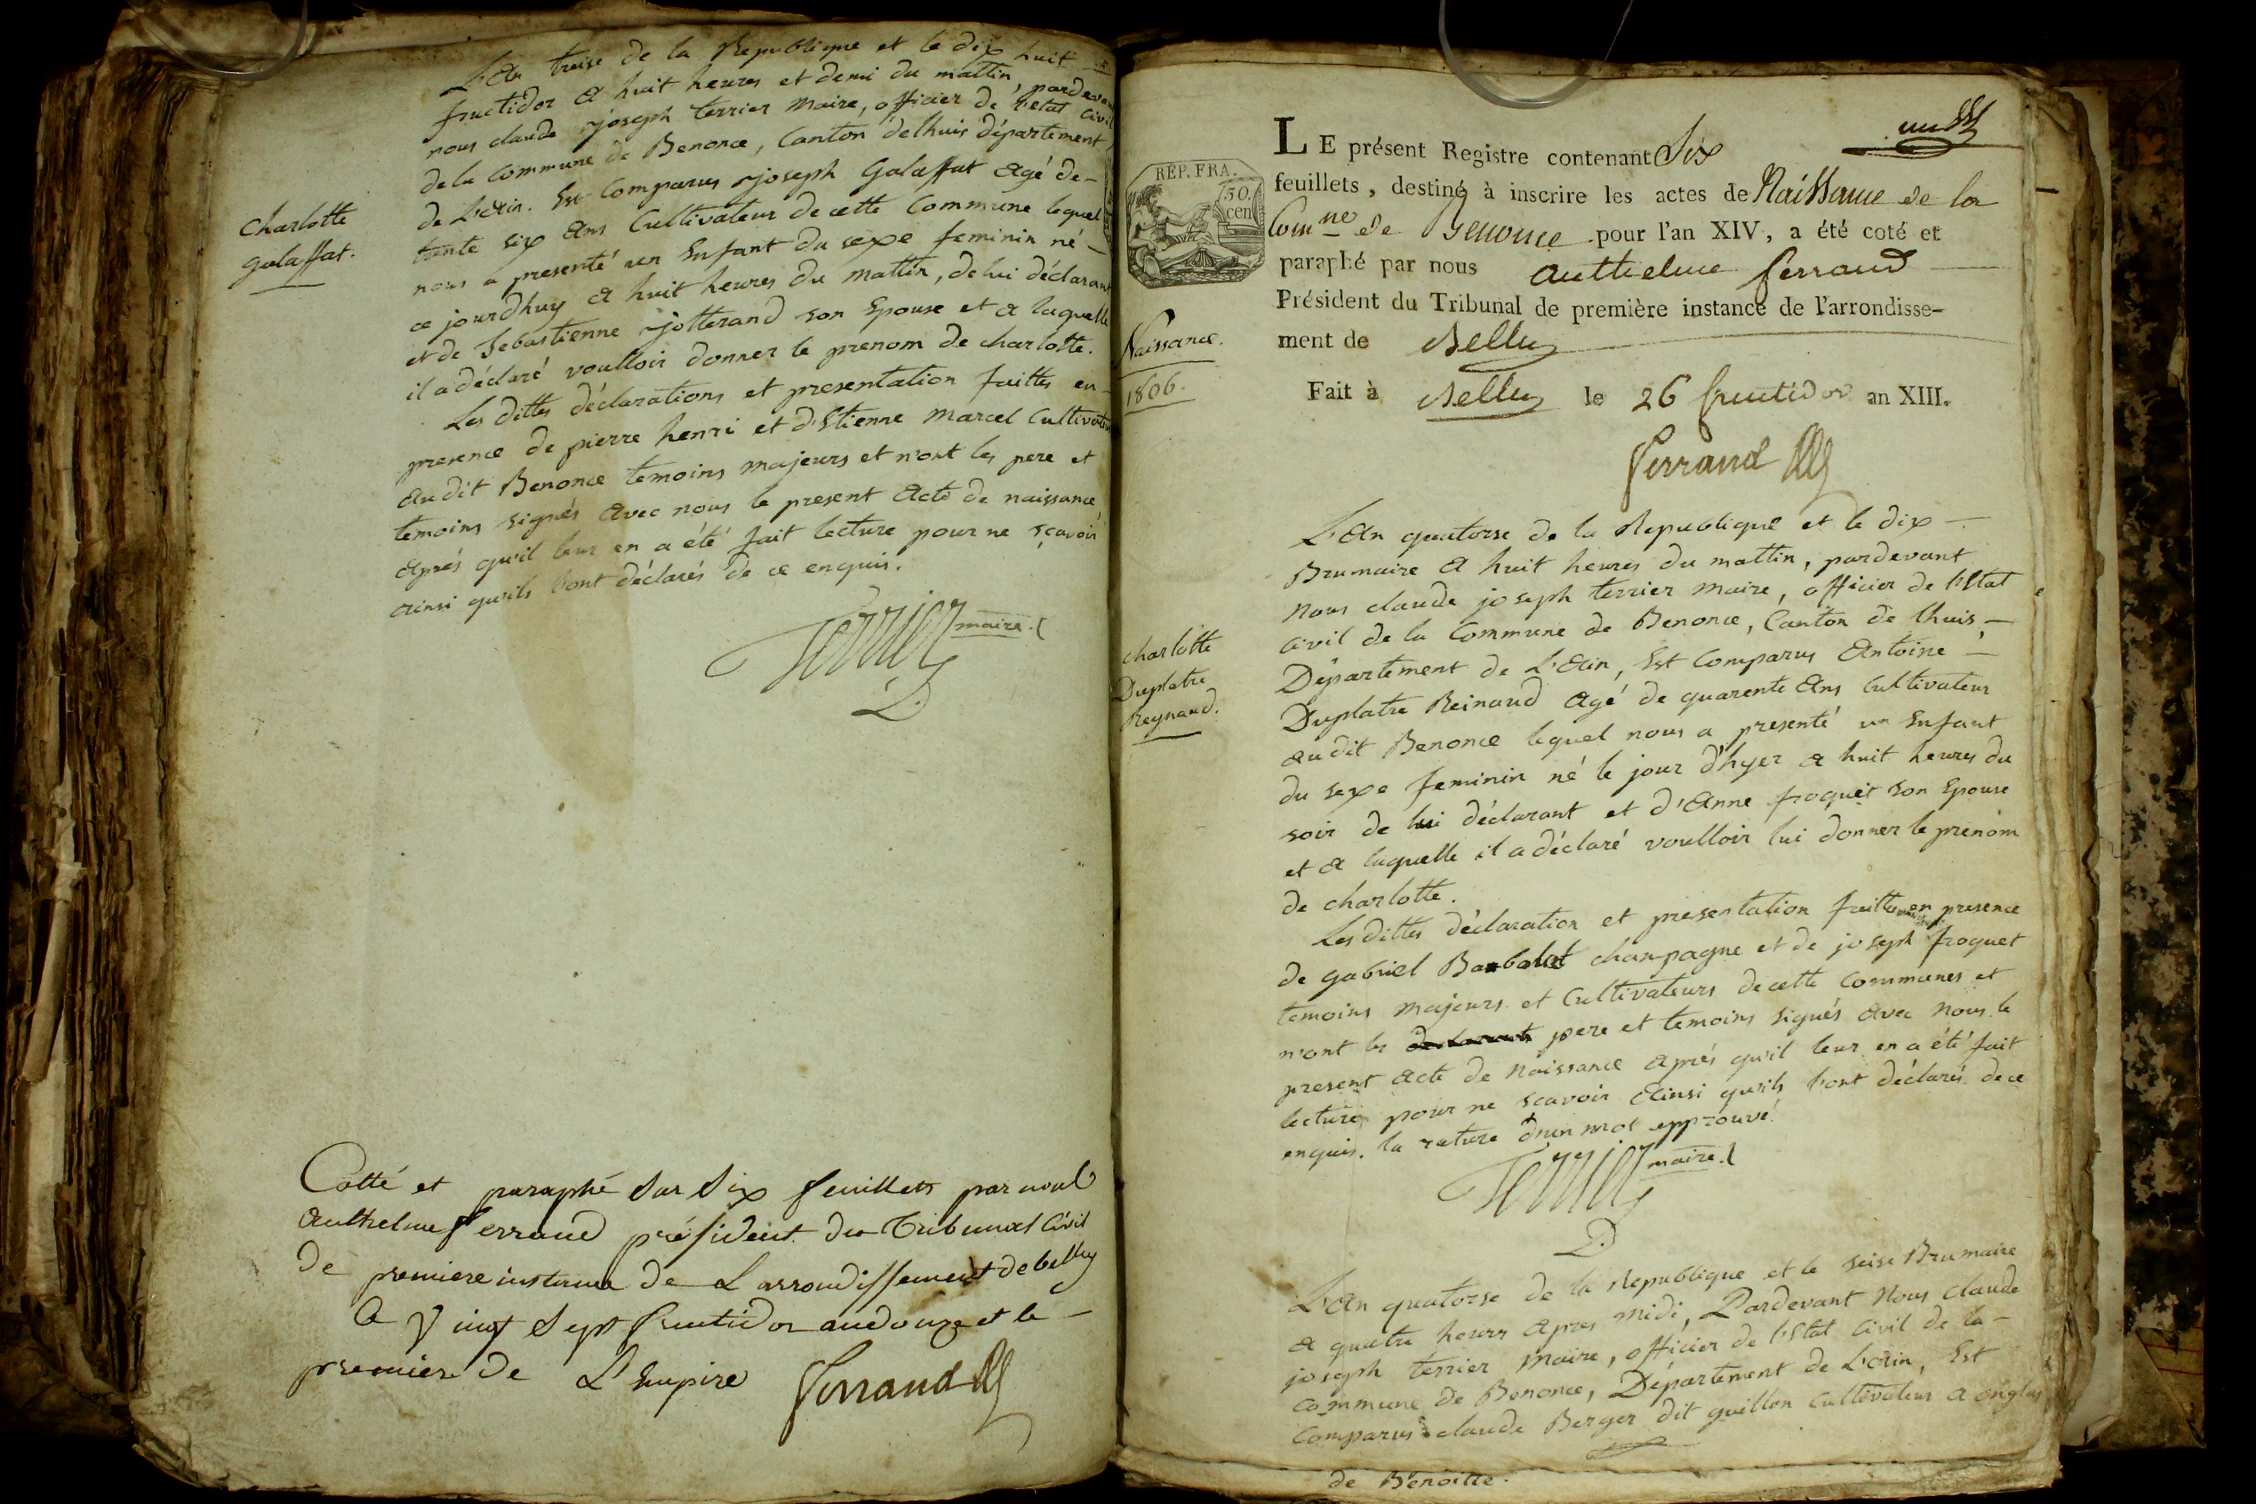 L'an treise de la Republique et le dix huit
fructidor a huit heures et demi du mattin, pardevant
nous claude joseph terrier maire, officier de l'etat civil
de la Commune de Benonce, Canton de lhuis département
de L'ain. Est Comparus joseph Galaffat agé de-
trente six ans Cultivateur de cette Commune lequel
nous a presenté un Enfant du sexe feminin né-
ce jourdhuy a huit heures du mattin, de lui déclarant
et de Sebastienne jotterand son Epouse et a laquelle
il a déclaré voulloir donner le prenom de charlotte.
Les dittes déclarations et presentation faittes en
presence de pierre henri et d'Etienne marcel Cultivateurs
audit Benonce temoins majeurs et n'ont les pere et
temoins signés avec nous le present acte de naissance,
après qu'il leur en a été fait lecture pour ne sçavoir
ainsi qu'ils l'ont déclarés de ce enquis.
Terrier maire.
charlotte
galaffat.
Cotté et paraphé Sur Six feuillets par nous
Anthelme ferrand président du Tribunal Civil
de premiere instance de L'arrondissement de belley
Le Vingt Sept fructidor an douze et le -
premier de L'Empire Ferrand
LE présent Registre contenant Six
feuillets, destiné à inscrire les actes de Naissance de la
Com.ne de Benonce pour l'an XIV, a été coté et
paraphé par nous Anthelme ferrand
Président du Tribunal de première instance de l'arrondisse-
ment de Belley
Fait à Belley le 26 fructidor an XIII.
Ferrand
REP. FRA.
50.
cen
Naissance.
1806.
L'An quatorse de la Republique et le dix -
Brumaire a huit heures du mattin, pardevant
Nous claude joseph terrier maire, officier de l'Etat
civil de la Commune de Benonce, Canton de lhuis,-
Département de L'ain, Est Comparus Antoine -
Duplatre Reinaud agé de quarente ans Cultivateur
audit Benonce lequel nous a presenté un Enfant
du sexe feminin né le jour d'hyer a huit heures du
soir de lui déclarant et d'anne froquet son Epouse
et a laquelle il a déclaré voulloir lui donner le prenom
de charlotte.
Les dittes déclaration et presentation faittes en presence
de gabriel Barbolat champagne et de joseph froquet
temoins majeurs et Cultivateurs de cette Communes et
n'ont les pere et temoins signés avec nous le
present acte de Naissance après qu'il leur en a été fait
lecture pour ne scavoir ainsi qu'ils l'ont déclarés de ce
enquis. la rature d'un mot approuvé.
Terrier maire.
charlotte
Duplatre
Reynaud.
L'An quatorse de la Republique et le seise Brumaire
a quatre heures apres midi, Pardevant Nous claude
joseph terrier maire, officier de l'Etat Civil de la-
commune de Benonce, Département de L'ain, Est
Comparus claude Berger dit guillon Cultivateur a onglas
de Benoitte.